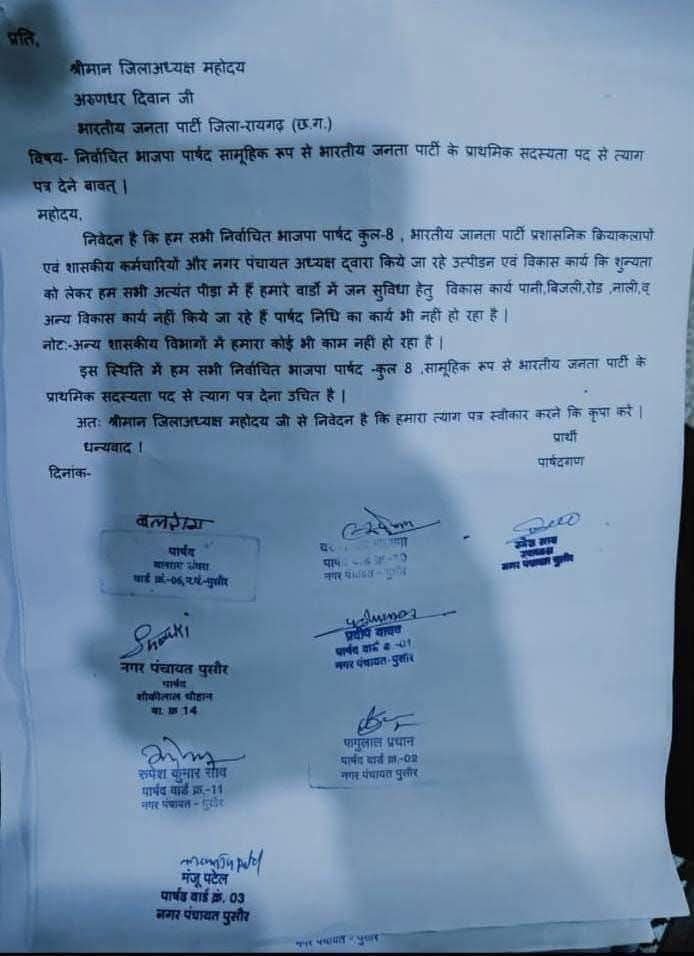 प्रति,
श्रीमान जिलाअध्यक्ष महोदय
अरुणधर दिवान जी
भारतीय जनता पार्टी जिला-रायगढ़ (छ.ग.)
विषय- निर्वाचित भाजपा पार्षद सामूहिक रूप से भारतीय जनता पार्टी के प्राथमिक सदस्यता पद से त्याग
पत्र देने बावत् |
महोदय,
निवेदन है कि हम सभी निर्वाचित भाजपा पार्षद कुल-8 , भारतीय जानता पार्टी प्रशासनिक क्रियाकलापों
एवं शासकीय कर्मचारियों और नगर पंचायत अध्यक्ष द्वारा किये जा रहे उत्पीडन एवं विकास कार्य कि शुन्यता
को लेकर हम सभी अत्यंत पीड़ा में हैं हमारे वार्डो में जन सुविधा हेतु विकास कार्य पानी,बिजली,रोड ,नाली,व्
अन्य विकास कार्य नहीं किये जा रहे हैं पार्षद निधि का कार्य भी नहीं हो रहा है |
नोट:-अन्य शासकीय विभागों में हमारा कोई भी काम नहीं हो रहा है |
इस स्थिति में हम सभी निर्वाचित भाजपा पार्षद -कुल 8 ,सामूहिक रूप से भारतीय जनता पार्टी के
प्राथमिक सदस्यता पद से त्याग पत्र देना उचित है |
अतः श्रीमान जिलाअध्यक्ष महोदय जी से निवेदन है कि हमारा त्याग पत्र स्वीकार करने कि कृपा करें |
धन्यवाद |
प्रार्थी
पार्षदगण
दिनांक-
पार्षद
वार्ड क्रं.-06, न.पं.-पुसौर
नगर पंचायत
उमेश साव
उपाध्यक्ष
नगर पंचायत पुसौर
नगर पंचायत पुसौर
पार्षद
शौकीलाल चौहान
वा. क्र 14
प्रदीप यादव
पार्षद वार्ड क्र.-01
नगर पंचायत-पुसौर
रुपेश कुमार साव
पार्षद वार्ड क्र.-11
नगर पंचायत - पुसौर
पागुलाल प्रधान
पार्षद वार्ड क्र.-02
नगर पंचायत पुसौर
मंजू पटेल
पार्षद वार्ड क्रं. 03
नगर पंचायत पुसौर
नगर पंचायत - पुसौर